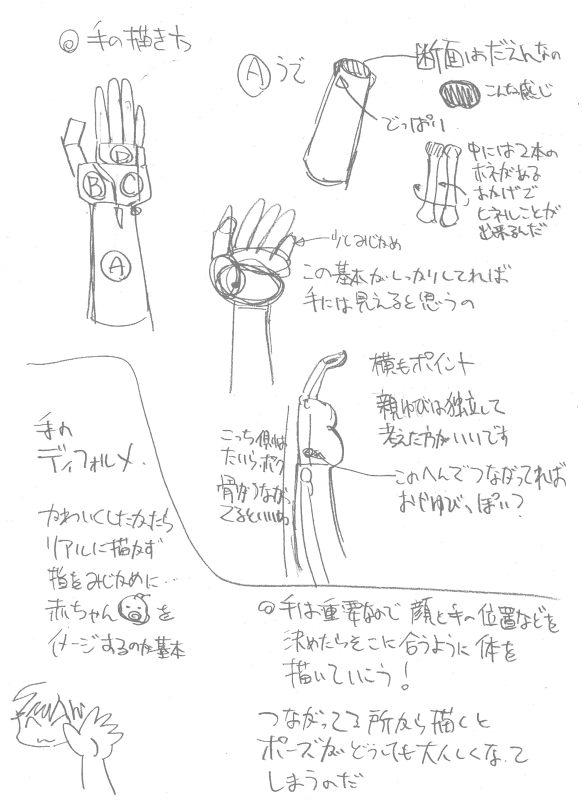 ◎ 手の描き方
Ⓐ うで
断面はだえんなの
こんな感じ
でっぱり
中には2本の
ホネがある
おかげで
ヒネルことが
出来るんだ
D
B
C
A
少しみじかめ
この基本がしっかりしてれば
手には見えると思うの
横もポイント
親ゆびは独立して
考えた方がいいです
こっち側は
たいらっぽく
骨からつながっ
てるといいね
このへんでつながってれば
おやゆびっぽい?
手の
ディフォルメ.
かわいくしたかったら
リアルに描かず
指をみじかめに…
赤ちゃんを
イメージするのが基本
◎手は重要なので 顔と手の位置などを
決めたらそこに合うように体を
描いていこう!
つながってる所から描くと
ポーズがどうしても大人しくなって
しまうのだ